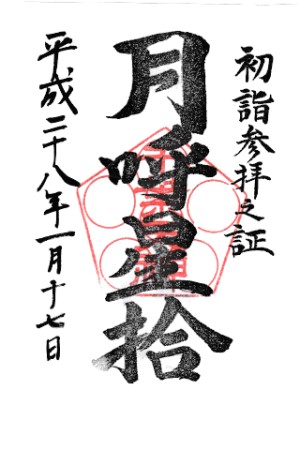 初詣参拝之証
月呼星拾
平成二十八年一月十七日